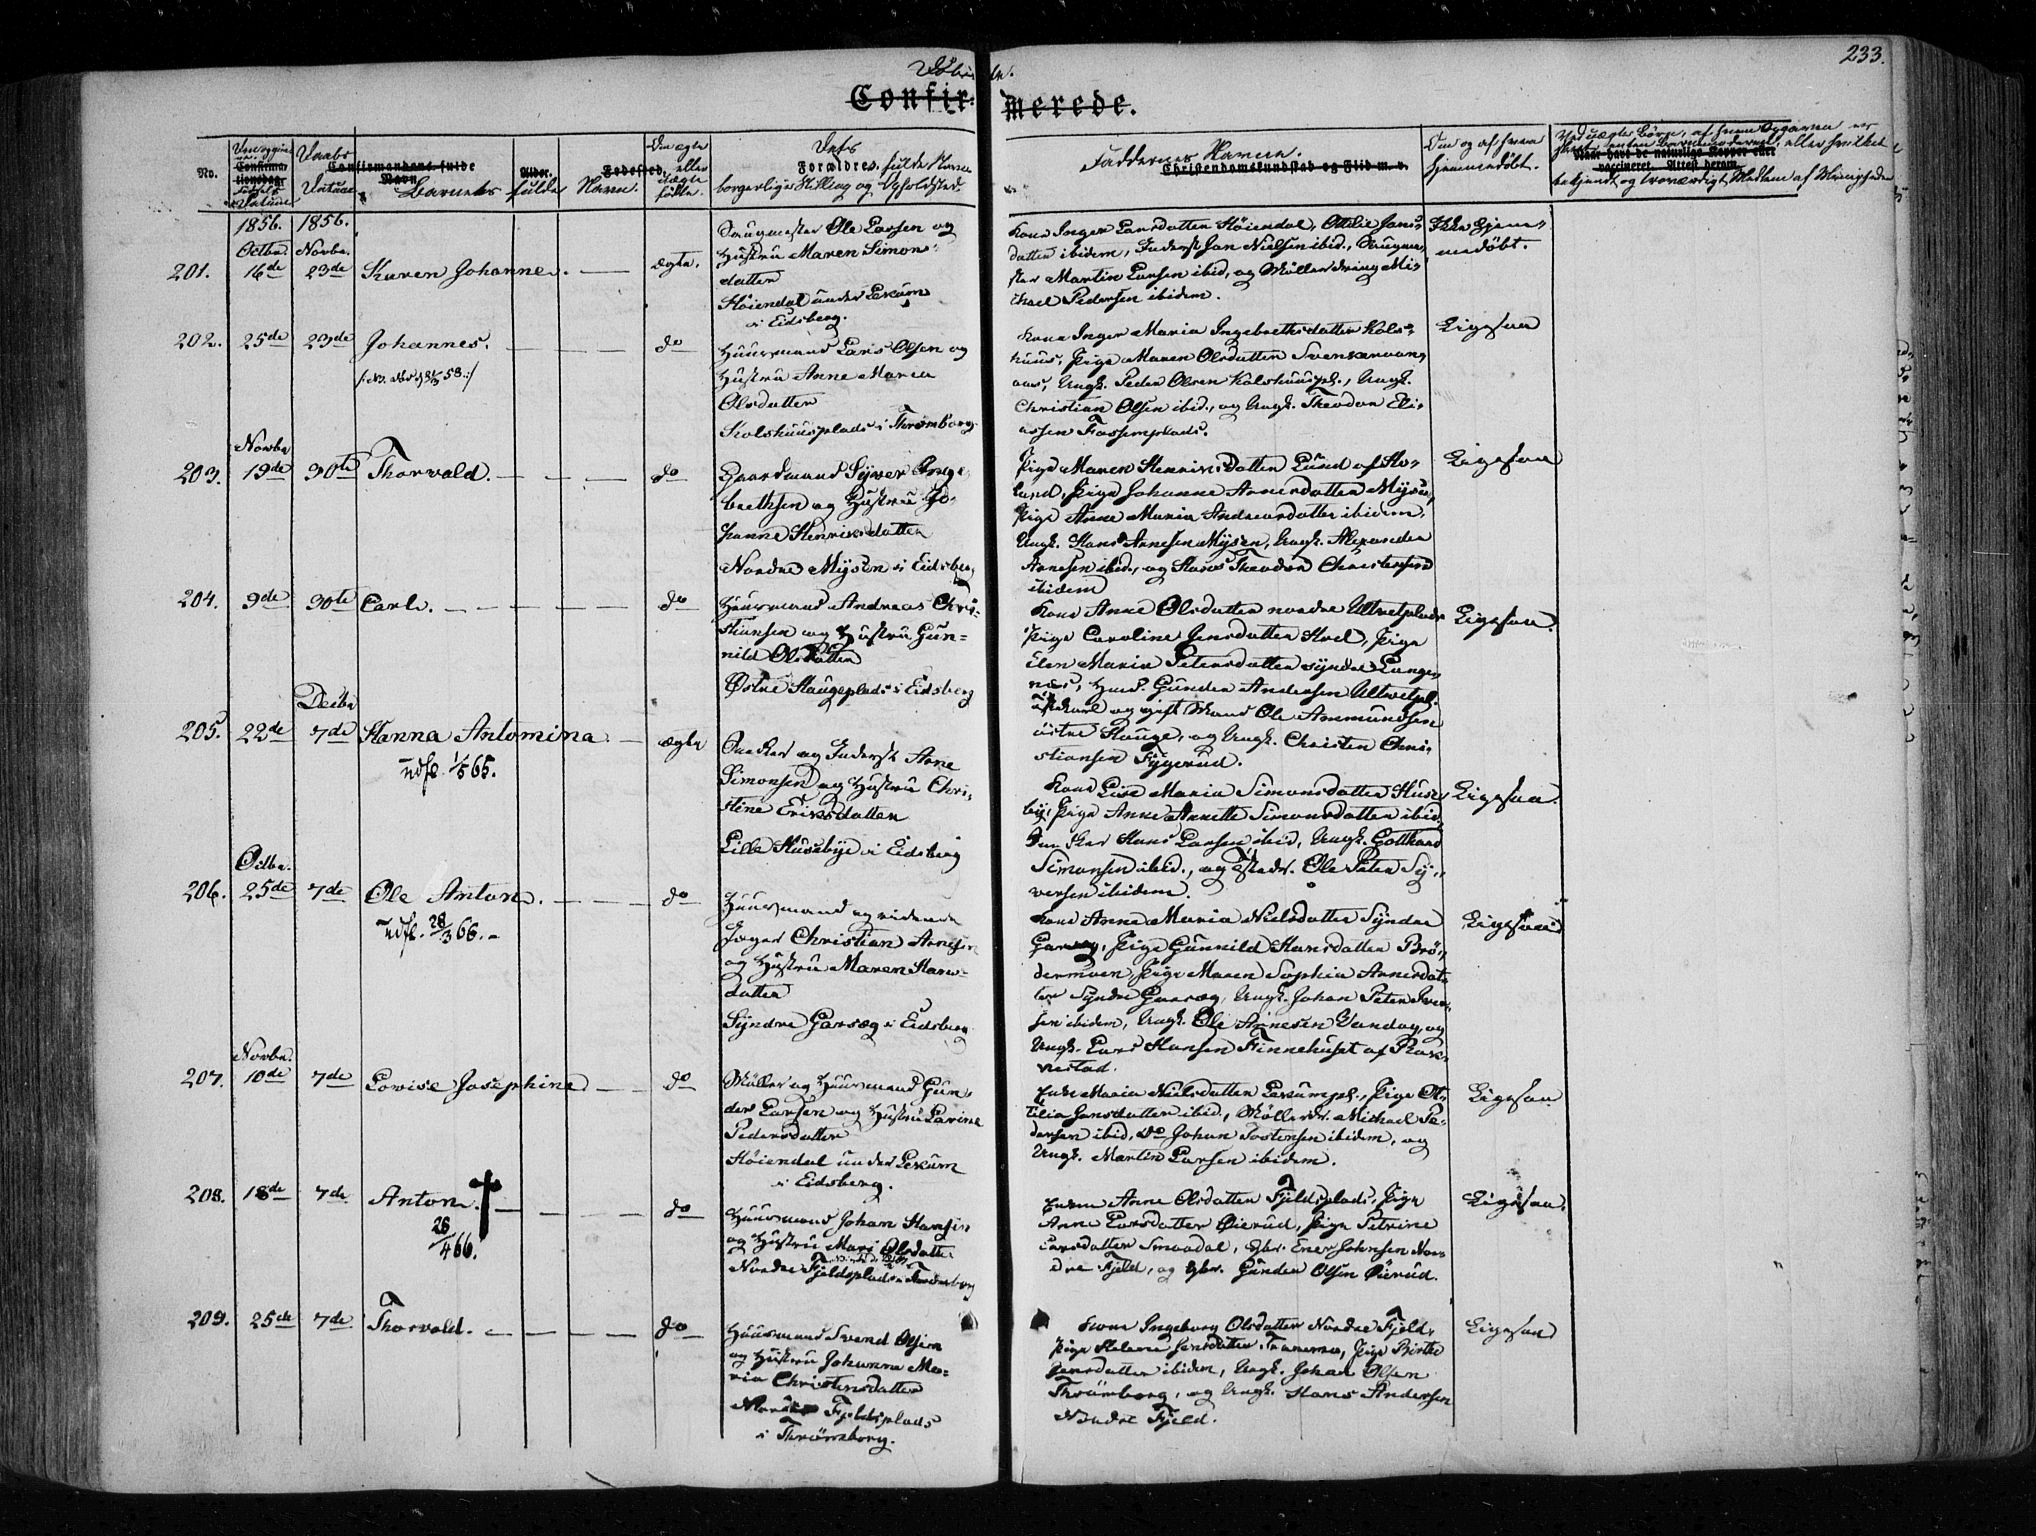 233.
Confir- merede.
No.
Daabs
Datum
Barnets fulde Navn.
Alder.
Fødested
Dets
Forældres fulde Navne
borgerlige Stilling og Opholdsted
Faddernes Navne.
Christendomskundskab og Flid m. v.
hjemmedøbt.
1856. 1856.
Octbr. Novbr.
201. 16de 23de Karen Johanne. ægte.
Saugmester Ole Larsen og
Hustru Maren Simons-
datter
Høiendal under Lekum
i Eidsberg.
Kone Inger Larsdatter Høiendal, Ottilie Jans-
datter ibidem, Inderst Jan Nielsen ibid.,
ster Martin Larsen ibid, og Møllerdreng Mi-
chael Pedersen ibidem.
Ikke hjem-
medøbt.
202. 25de 23de Johannes. do
Huusmand Lars Olsen og
Hustru Anne Maria
Olsdatter
Kolshuusplads i Thrømborg
Kone Inger Maria Ingebrethsdatter Kols-
huus, Pige Maren Olsdatter
Ungk. Peder Olsen Kolshuuspl., Ungk.
Christian Olsen ibid., og Ungk. Theodor Eli-
assen Fossemplads.
Ligesaa
Novbr
203. 19de 30te Thorvald. do
Gaardmand Syver Inge-
brethsen og Hustru Jo-
hanne Henriksdatter
Nordre Mysen i Eidsberg
Pige Maren Henriksdatter Lund af Ho-
land, Pige Johanne Arnesdatter Mysen,
Pige Anne Maria Andreasdatter ibidem,
Ungk. Hans Arnesen Mysen, Ungk. Alexander
Arnesen ibid., og Hans Theodor Christensen
ibidem
Ligesaa
204. 9de 30te Carl. do
Huusmand Andreas Chri-
stiansen og Hustru Gun-
nild Olsdatter
Østre Haugeplads i Eidsberg
Kone Anne Olsdatter nordre Ultvetplads
Pige Caroline Jensdatter Hoel, Pige
Elen Maria Petersdatter syndre Lange-
næs, Huusm. Gunder Andersen Ultvetpl.
og gift Mand Ole Ammundsen
østre Hauge, og Ungk. Christen Chri-
stiansen Tyggerud.
Ligesaa.
Decbr
205. 22de 7de Hanna Antomina. ægte
udfl. 1/5 65.
Snedker og Inderst Arne
Simonsen og Hustru Chri-
stine Eriksdatter
Lille Husebye i Eidsberg
Kone Lise Maria Simonsdatter Huse-
by, Pige Anne Annette Simonsdatter ibid.
Hans Larsen ibid, Ungk. Gotthard
Simonsen ibid., og Ole Peter Sy-
versen ibidem.
Ligesaa.
Octbr.
206. 25de 7de Ole Anton. do
udfl. 28/3 66.
Huusmand og ridende
Jæger Christian Arnesen
og Hustru Maren Hans-
datter
Syndre Garseg i Eidsberg
Kone Anne Maria Nielsdatter Syndre
Garseg, Pige Gunnild Hansdatter Brø-
dermoen, Pige Maren Sophia Arnesdat-
ter Syndre Garseg, Ungk. Johan Peter Iver-
sen ibidem, Ungk. Ole Arnesen Vandog, og
Ungk. Lars Hansen Finnehuset af Rak-
kestad.
Ligesaa
Novbr.
207. 10de 7de Lovise Josephine do
Møller og Huusmand Gun-
der Larsen og Hustru Lavine
Pedersdatter
Høiendal under Lekum
i Eidsberg.
Enke Maria Nielsdatter Lekumpl., Pige Ot-
tilia Jansdatter ibid., Møllerdr. Michael Pe-
dersen ibid, do Johan Tostensen ibidem, og
Ungk. Martin Larsen ibidem.
Ligesaa
208. 18de 7de Anton. do
28/4 66.
Huusmand Johan Hansen
og Hustru Mari Olsdatter
Nordre Fjeldsplads i Trømborg
Enken Anne Olsdatter Fjeldsplads, Pige
Anne Larsdatter Øierud, Pige Petrine
Larsdatter Smaadal, Gbr. Ener Johnsen Nor-
dre Fjeld, og Gbr. Gunder Olsen Øierud.
Ligesaa.
209. 25de 7de Thorvald. do
Huusmand Svend Olsen
og Hustru Johanne Ma-
ria Christensdatter
Nordre Fjeldsplads
i Thrømborg.
Kone Ingeborg Olsdatter Nordre Fjeld,
Pige Helene Jensdatter Pige Birthe
Jensdatter ibidem, Ungk. Johan Olsen
Thrømborg, og Ungk. Hans Andersen
Nordre Fjeld.
Ligesaa